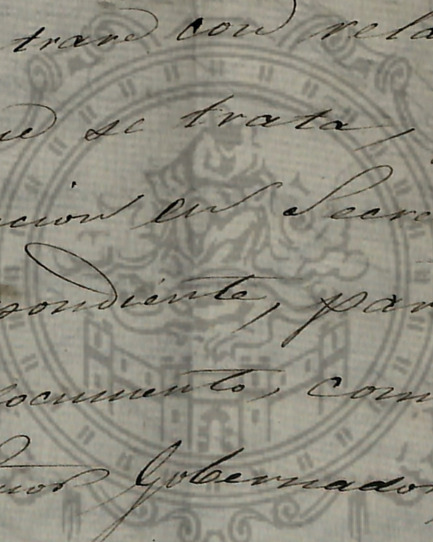 trare con rela
ue se trata,
cion en Secre
pondiente, par
ocumento, com
ñor Gobernador